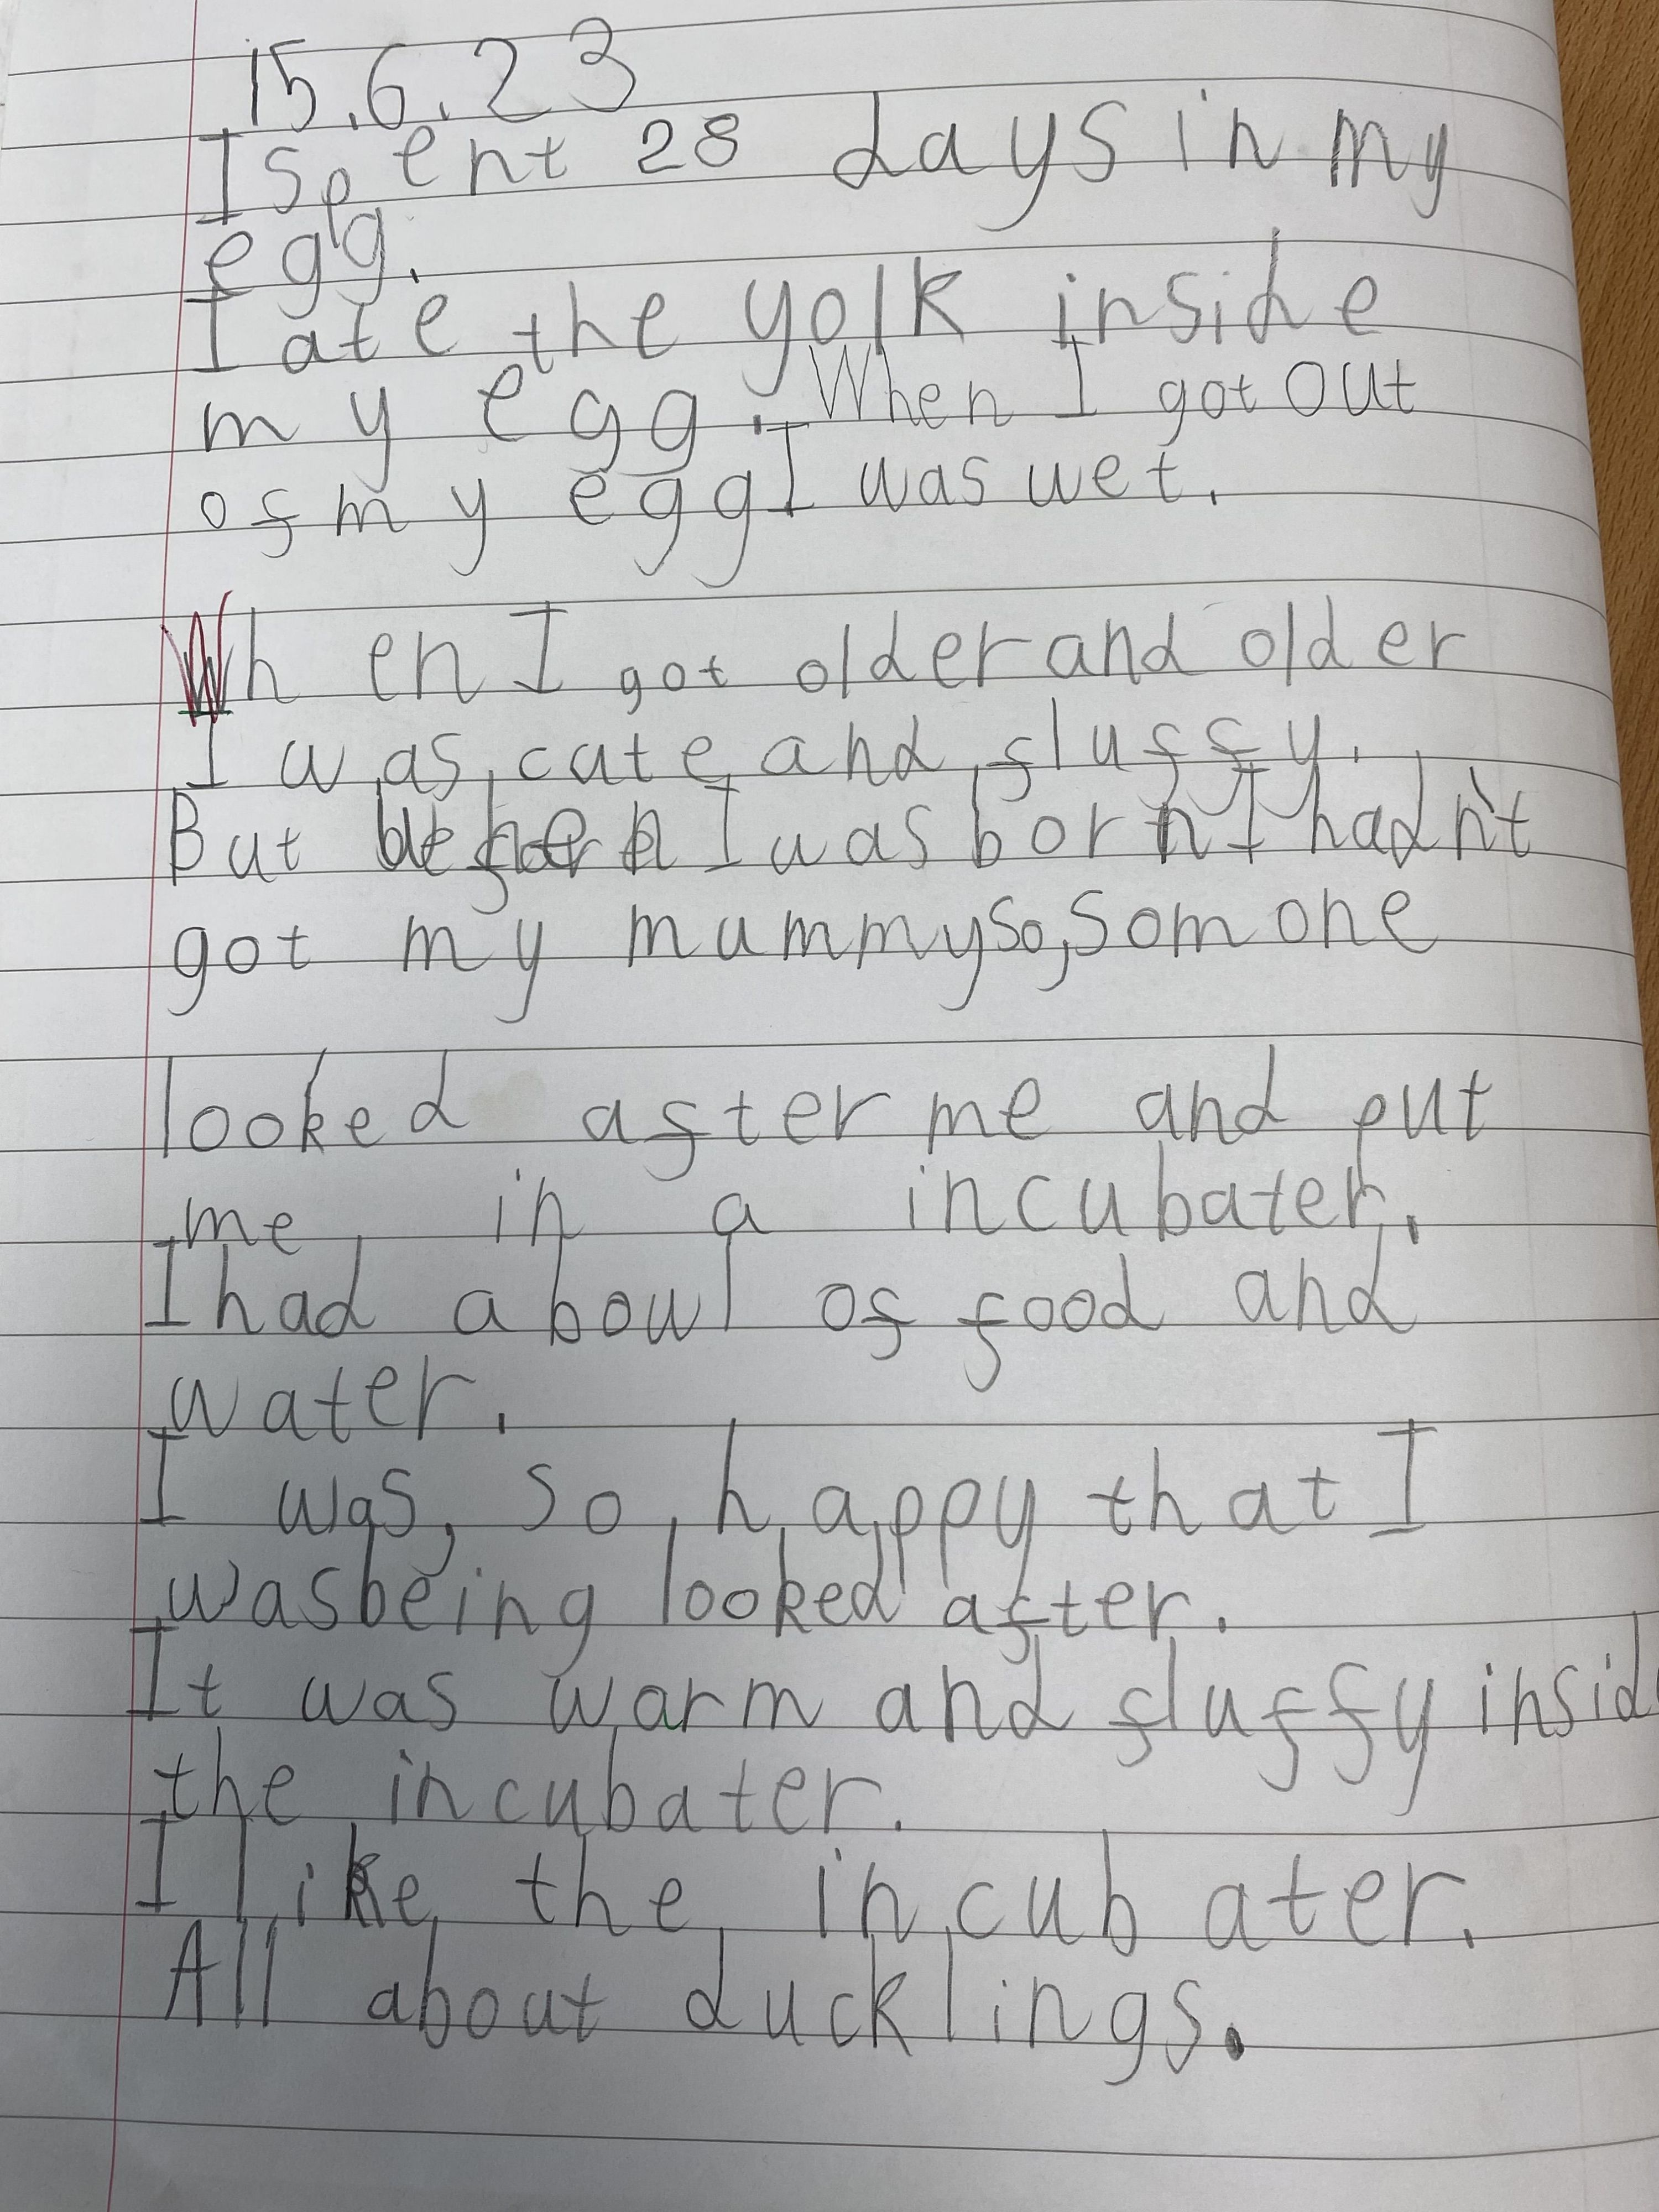 15.6.23
I spent 28 days in my
egg.
I ate the yolk inside
my egg. When I got out
of my egg I was wet.
When I got older and older
I was cute and fluffy.
But when I was born I hadn't
got my mummy so, somone
looked after me and put
me in a incubater.
I had a bowl of food and
water.
I was, so happy that I
was being looked after.
It was warm and fluffy insid
the incubater.
I like the incubater.
All about ducklings.